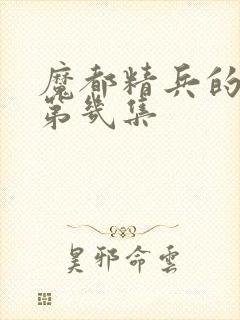 魔都精兵的
第几集
昊邪命雲